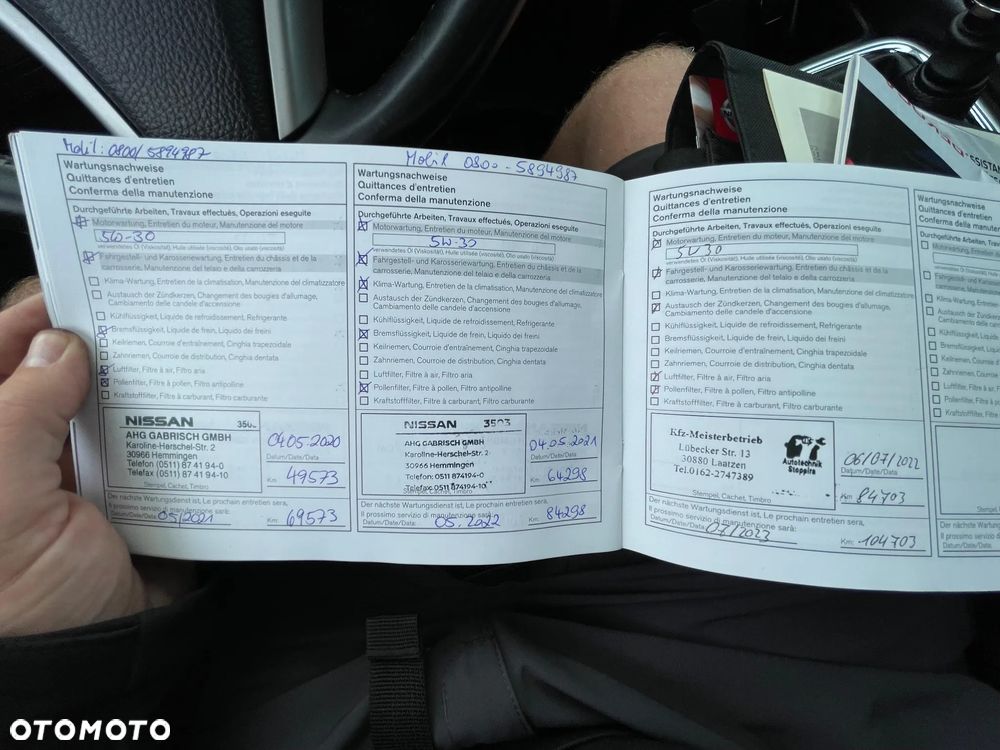 Mobil: 0800/5894987
Wartungsnachweise
Quittances d'entretien
Conferma della manutenzione
Durchgeführte Arbeiten, Travaux effectués, Operazioni eseguite
Motorwartung, Entretien du moteur, Manutenzione del motore
5W-30
verwendetes Öl (Viskosität), Huile utilisée (viscosité), Olio usato (viscosità)
Fahrgestell- und Karosseriewartung, Entretien du châssis et de la
carrosserie, Manutenzione del telaio e della carrozzeria
Klima-Wartung, Entretien de la climatisation, Manutenzione del climatizzatore
Austausch der Zündkerzen, Changement des bougies d'allumage,
Cambiamento delle candele d'accensione
Kühlflüssigkeit, Liquide de refroidissement, Refrigerante
Bremsflüssigkeit, Liquide de frein, Liquido dei freini
Keilriemen, Courroie d'entraînement, Cinghia trapezoidale
Zahnriemen, Courroie de distribution, Cinghia dentata
Luftfilter, Filtre à air, Filtro aria
Pollenfilter, Filtre à pollen, Filtro antipolline
Kraftstofffilter, Filtre à carburant, Filtro carburante
NISSAN
AHG GABRISCH GMBH
Karoline-Herschel-Str. 2
30966 Hemmingen
Telefon (0511) 87 41 94-0
Telefax (0511) 87 41 94-10
Stempel, Cachet, Timbro
04.05.2020
Datum/Date/Data
49573
Der nächste Wartungsdienst ist, Le prochain entretien sera,
Il prossimo servizio di manutenzione sarà:
Datum/Date/Data: 05/2021 Km: 69573
Mobil 0800-5894987
Wartungsnachweise
Quittances d'entretien
Conferma della manutenzione
Durchgeführte Arbeiten, Travaux effectués, Operazioni eseguite
Motorwartung, Entretien du moteur, Manutenzione del motore
5W-30
verwendetes Öl (Viskosität), Huile utilisée (viscosité), Olio usato (viscosità)
Fahrgestell- und Karosseriewartung, Entretien du châssis et de la
carrosserie, Manutenzione del telaio e della carrozzeria
Klima-Wartung, Entretien de la climatisation, Manutenzione del climatizzatore
Austausch der Zündkerzen, Changement des bougies d'allumage,
Cambiamento delle candele d'accensione
Kühlflüssigkeit, Liquide de refroidissement, Refrigerante
Bremsflüssigkeit, Liquide de frein, Liquido dei freini
Keilriemen, Courroie d'entraînement, Cinghia trapezoidale
Zahnriemen, Courroie de distribution, Cinghia dentata
Luftfilter, Filtre à air, Filtro aria
Pollenfilter, Filtre à pollen, Filtro antipolline
Kraftstofffilter, Filtre à carburant, Filtro carburante
NISSAN 3503
AHG GABRISCH GMBH
Karoline-Herschel-Str. 2
30966 Hemmingen
Telefon: 0511 874194-0
Telefax: 0511 874194-10
Stempel, Cachet, Timbro
04.05.2021
Datum/Date/Data
64298
Der nächste Wartungsdienst ist, Le prochain entretien sera,
Il prossimo servizio di manutenzione sarà:
Datum/Date/Data: 05.2022 Km: 84298
Wartungsnachweise
Quittances d'entretien
Conferma della manutenzione
Durchgeführte Arbeiten, Travaux effectués, Operazioni eseguite
Motorwartung, Entretien du moteur, Manutenzione del motore
5W30
verwendetes Öl (Viskosität), Huile utilisée (viscosité), Olio usato (viscosità)
Fahrgestell- und Karosseriewartung, Entretien du châssis et de la
carrosserie, Manutenzione del telaio e della carrozzeria
Klima-Wartung, Entretien de la climatisation, Manutenzione del climatizzatore
Austausch der Zündkerzen, Changement des bougies d'allumage,
Cambiamento delle candele d'accensione
Kühlflüssigkeit, Liquide de refroidissement, Refrigerante
Bremsflüssigkeit, Liquide de frein, Liquido dei freini
Keilriemen, Courroie d'entraînement, Cinghia trapezoidale
Zahnriemen, Courroie de distribution, Cinghia dentata
Luftfilter, Filtre à air, Filtro aria
Pollenfilter, Filtre à pollen, Filtro antipolline
Kraftstofffilter, Filtre à carburant, Filtro carburante
Kfz-Meisterbetrieb
Lübecker Str. 13
30880 Laatzen
Tel.0162-2747389
Autotechnik
Stempel, Cachet, Timbro
06/07/2022
Datum/Date/Data
Km: 84703
Der nächste Wartungsdienst ist, Le prochain entretien sera,
Il prossimo servizio di manutenzione sarà:
Datum/Date/Data: 07/2023 Km: 104703
Wartungsnachweise
Quittances
Conferma della
Durchgeführte Arbeiten
Motorwartung
Fahrgestell- und
carrosserie
Klima-Wartung, Ent
Austausch der
Cambiamento delle
Kühlflüssigkeit, Li
Bremsflüssigkeit
Keilriemen, Cour
Zahnriemen, Cou
Luftfilter, Filtre à
Pollenfilter, Filtre
Kraftstofffilter
Der nächste Wartung
Il prossimo servizio
Datum/Date/Data:
OTOMOTO